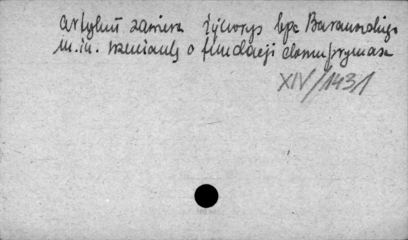 artykuł zawiera życiorys bpa Baranowskiego
m.in. wzmiankę o fundacji domu prymasa
XIV/1431